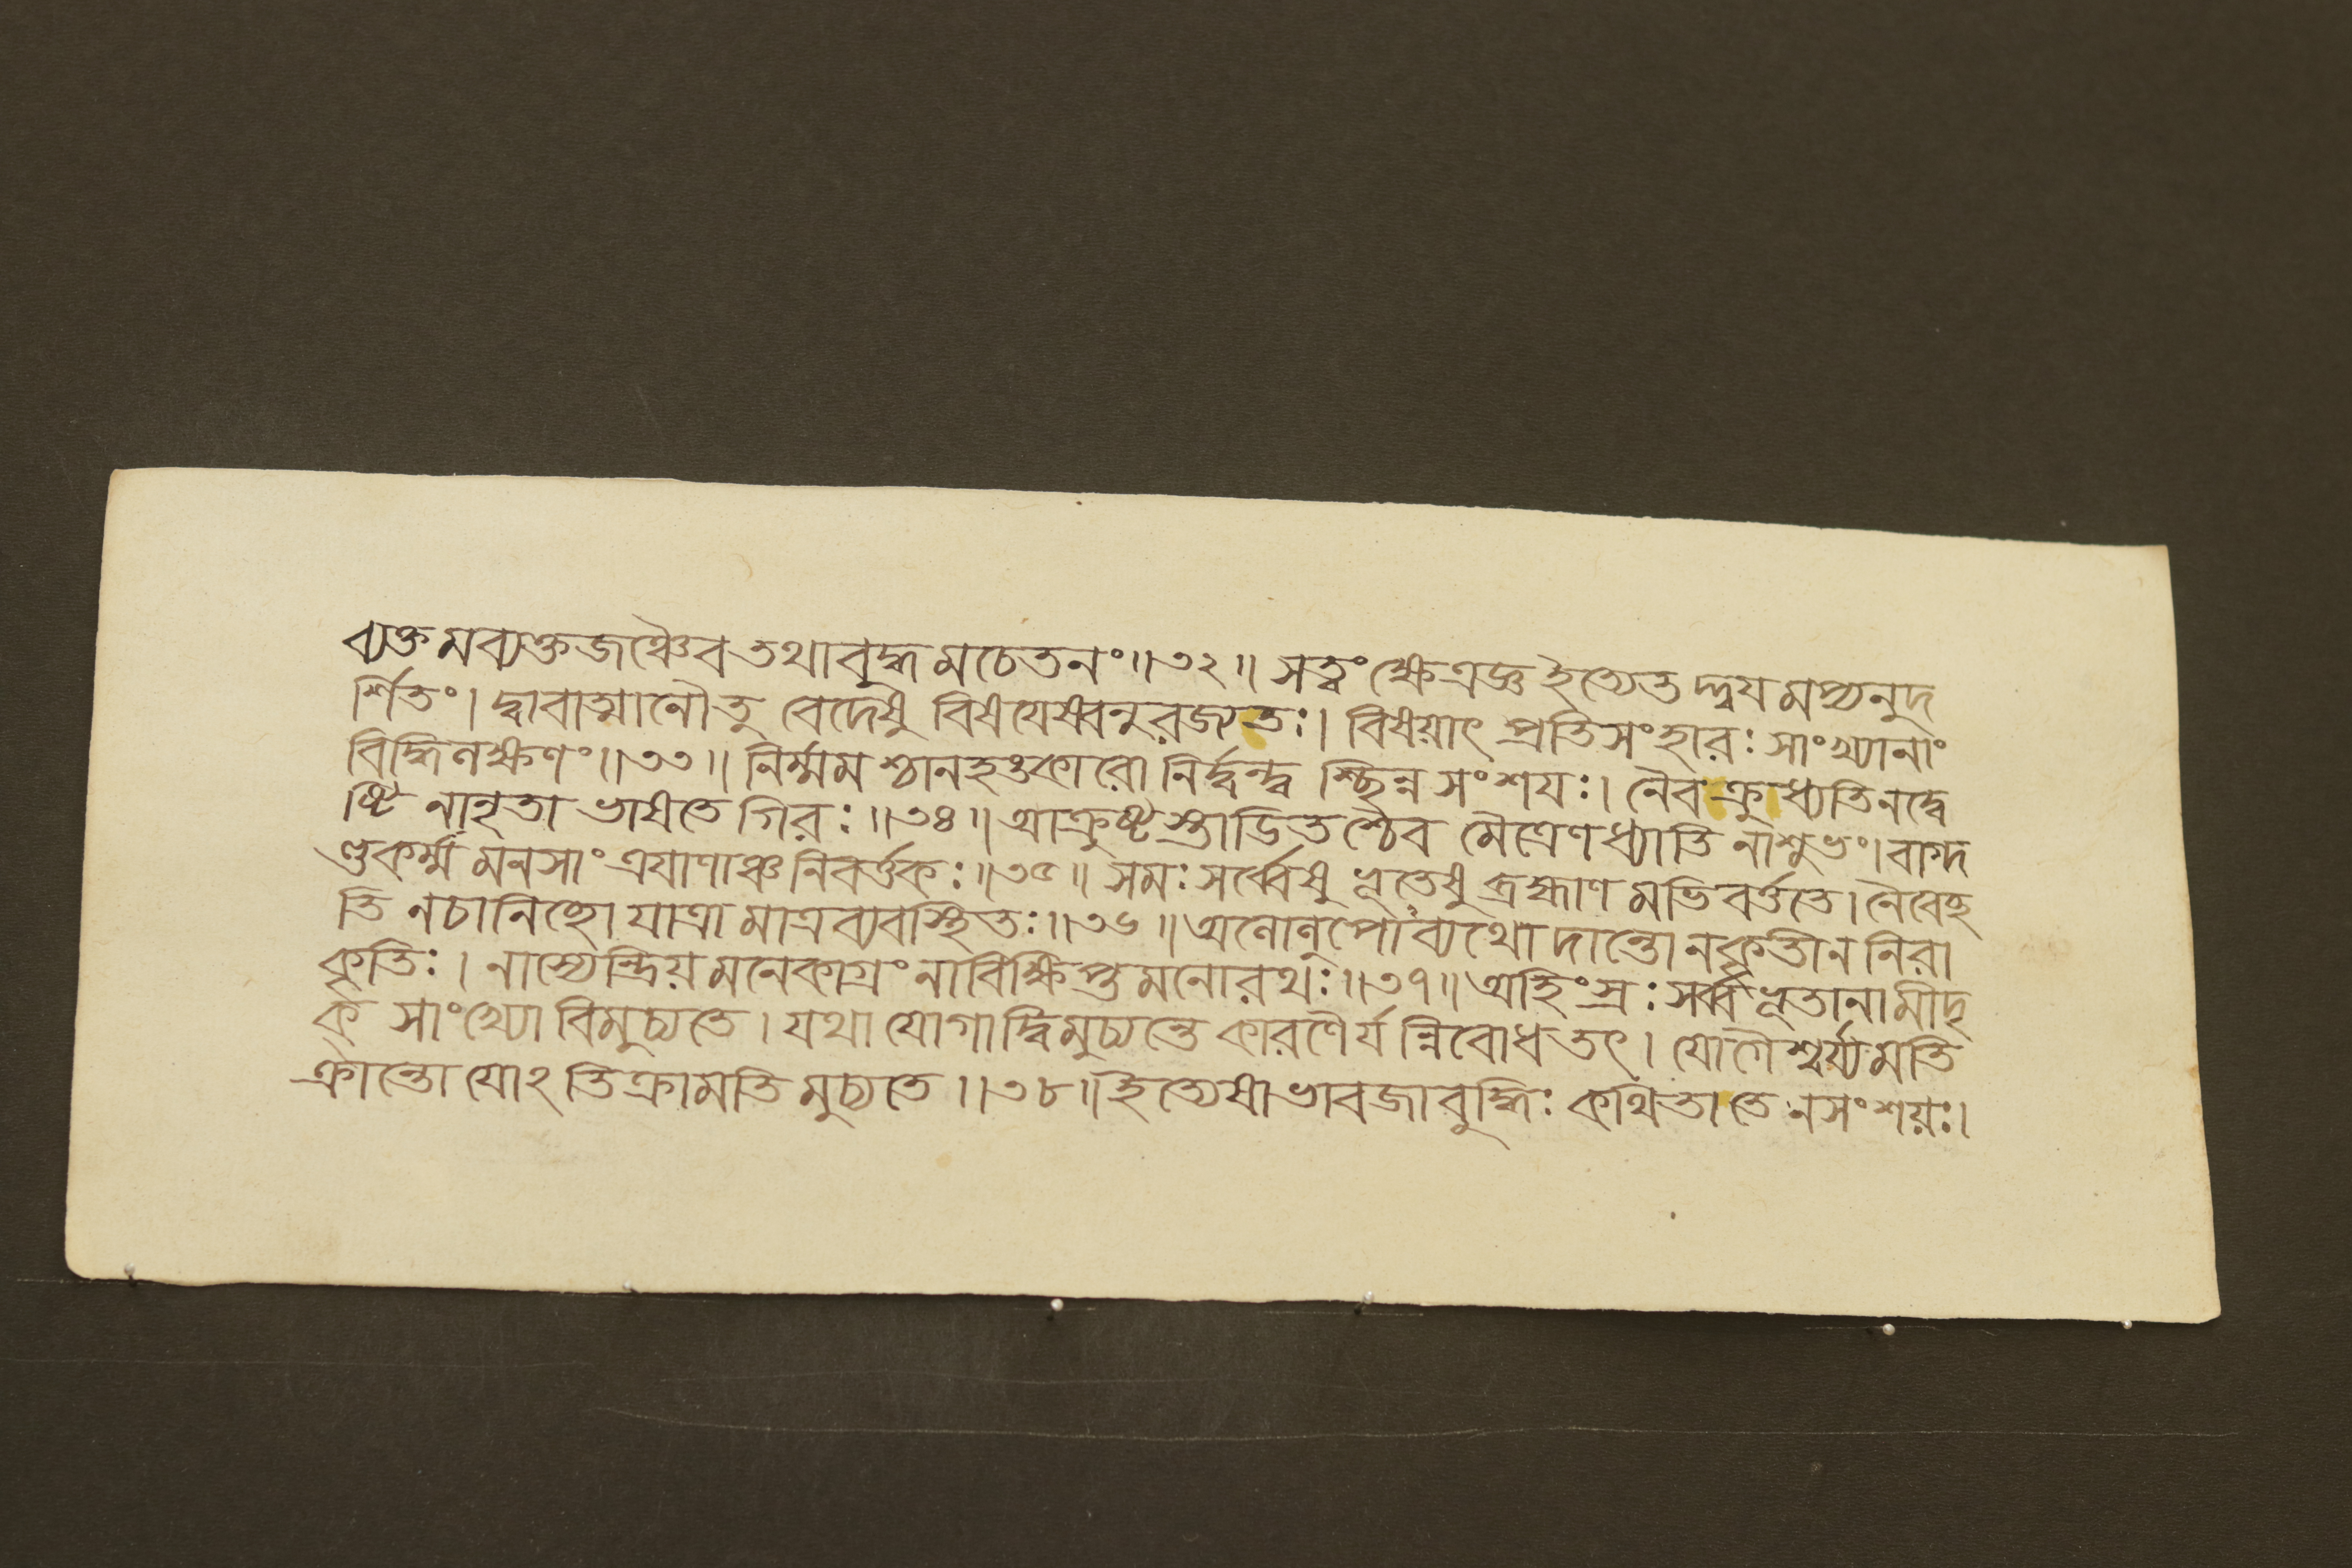 ব্যক্তমব্যক্তজঞ্চৈব তথাবুদ্ধমচেতনং॥৩২॥ সত্ত্বং ক্ষেত্রজ্ঞ ইত্যেতদ্দ্বযমপ্যনুদ
র্শিতং। দ্বাবাত্মানৌতু বেদেষু বিষযেষ্বনুরজ্যতঃ। বিষয়াৎ প্রতিসংহারঃ সাংখ্যানাং
বিদ্ধিলক্ষণং॥৩৩॥ নির্ম্মমশ্চানহঙ্কারো নির্দ্বন্দ্বশ্ছিন্নসংশযঃ। নৈব ক্রুধ্যতিনদ্বে
ষ্টি নানৃতা ভাষতে গিরঃ॥৩৪॥ আক্রুষ্টস্তাডিতশ্চৈব মৈত্রেণধ্যাতি নাশুভং।বাগ্দ
ণ্ডকর্ম্মমনসাং ত্রযাণাঞ্চনিবর্ত্তকঃ॥৩৫॥ সমঃসর্ব্বেষু ভূতেষু ব্রহ্মাণমভিবর্ত্ততে।নৈবেচ্ছ
তি নচানিচ্ছো যাত্রামাত্রব্যবস্থিতঃ॥৩৬॥ অলোলুপোঽব্যথোদান্তোনকৃতীন নিরা
কৃতিঃ। নাস্যেন্দ্রিয়মনেকাগ্রং নাবিক্ষিপ্তমনোরথঃ॥৩৭॥ অহিংস্রঃসর্ব্বভূতানামীদৃ
ক্ সাংখ্যো বিমুচ্যতে। যথা যোগাদ্বিমুচ্যন্তে কারণৈর্যন্নিবোধতৎ। যোগৈশ্বর্য্যমতি
ক্রান্তো যোঽতিক্রামতি মুচ্যতে॥৩৮॥ ইত্যেষাভাবজাবুদ্ধিঃ কথিতাতে নসংশয়ঃ।